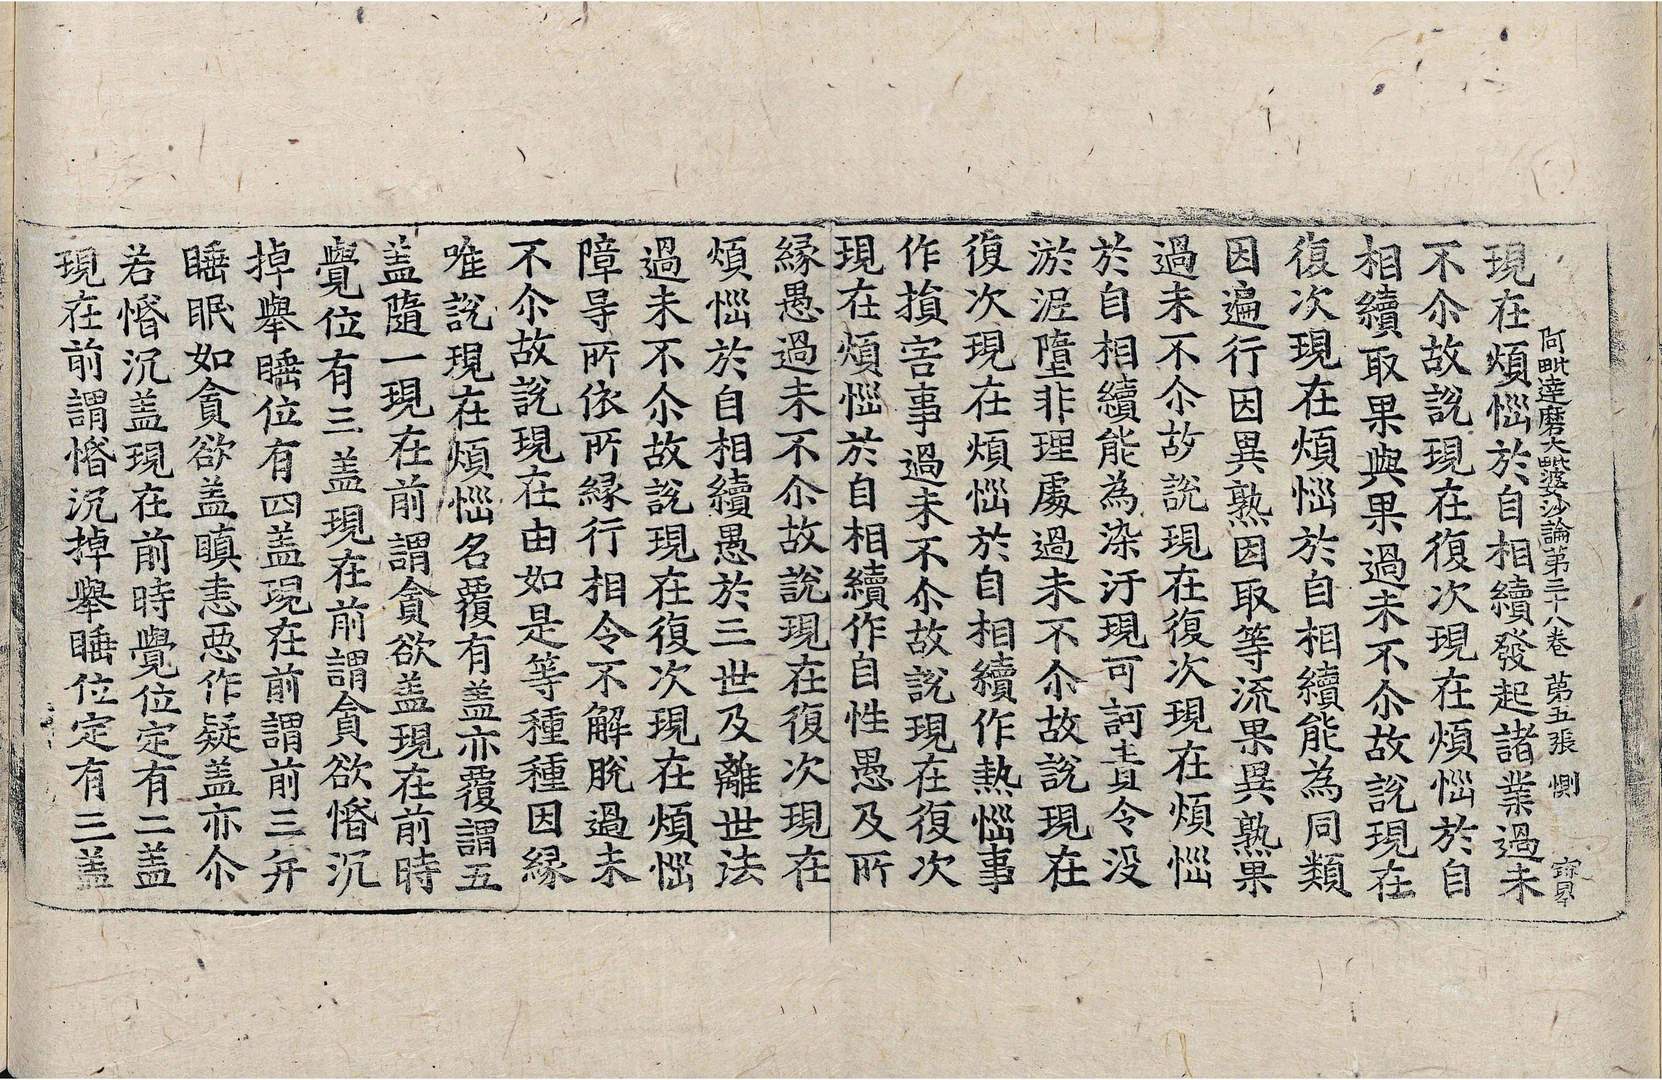 阿毗達磨大毗婆沙論第三十八卷 第五張 惻
現在煩惱於自相續發起諸業過未
不尒故說現在復次現在煩惱於自
相續取果與果過未不尒故說現在
復次現在煩惱於自相續能為同類
因遍行因異熟因取等流果異熟果
過未不尒故說現在復次現在煩惱
於自相續能為染汙現可訶責令没
淤泥墮非理處過未不尒故說現在
復次現在煩惱於自相續作熱惱事
作損害事過未不尒故說現在復次
現在煩惱於自相續作自性愚及所
緣愚過未不尒故說現在復次現在
煩惱於自相續愚於三世及離世法
過未不尒故說現在復次現在煩惱
障㝵所依所緣行相令不解脫過未
不尒故說現在由如是等種種因緣
唯說現在煩惱名覆有盖亦覆謂五
盖隨一現在前謂貪欲盖現在前時
覺位有三盖現在前謂貪欲惛沉
掉舉睡位有四盖現在前謂前三并
睡眠如貪欲盖瞋恚惡作疑盖亦尒
若惛沉盖現在前時覺位定有二盖
現在前謂惛沉掉舉睡位定有三盖